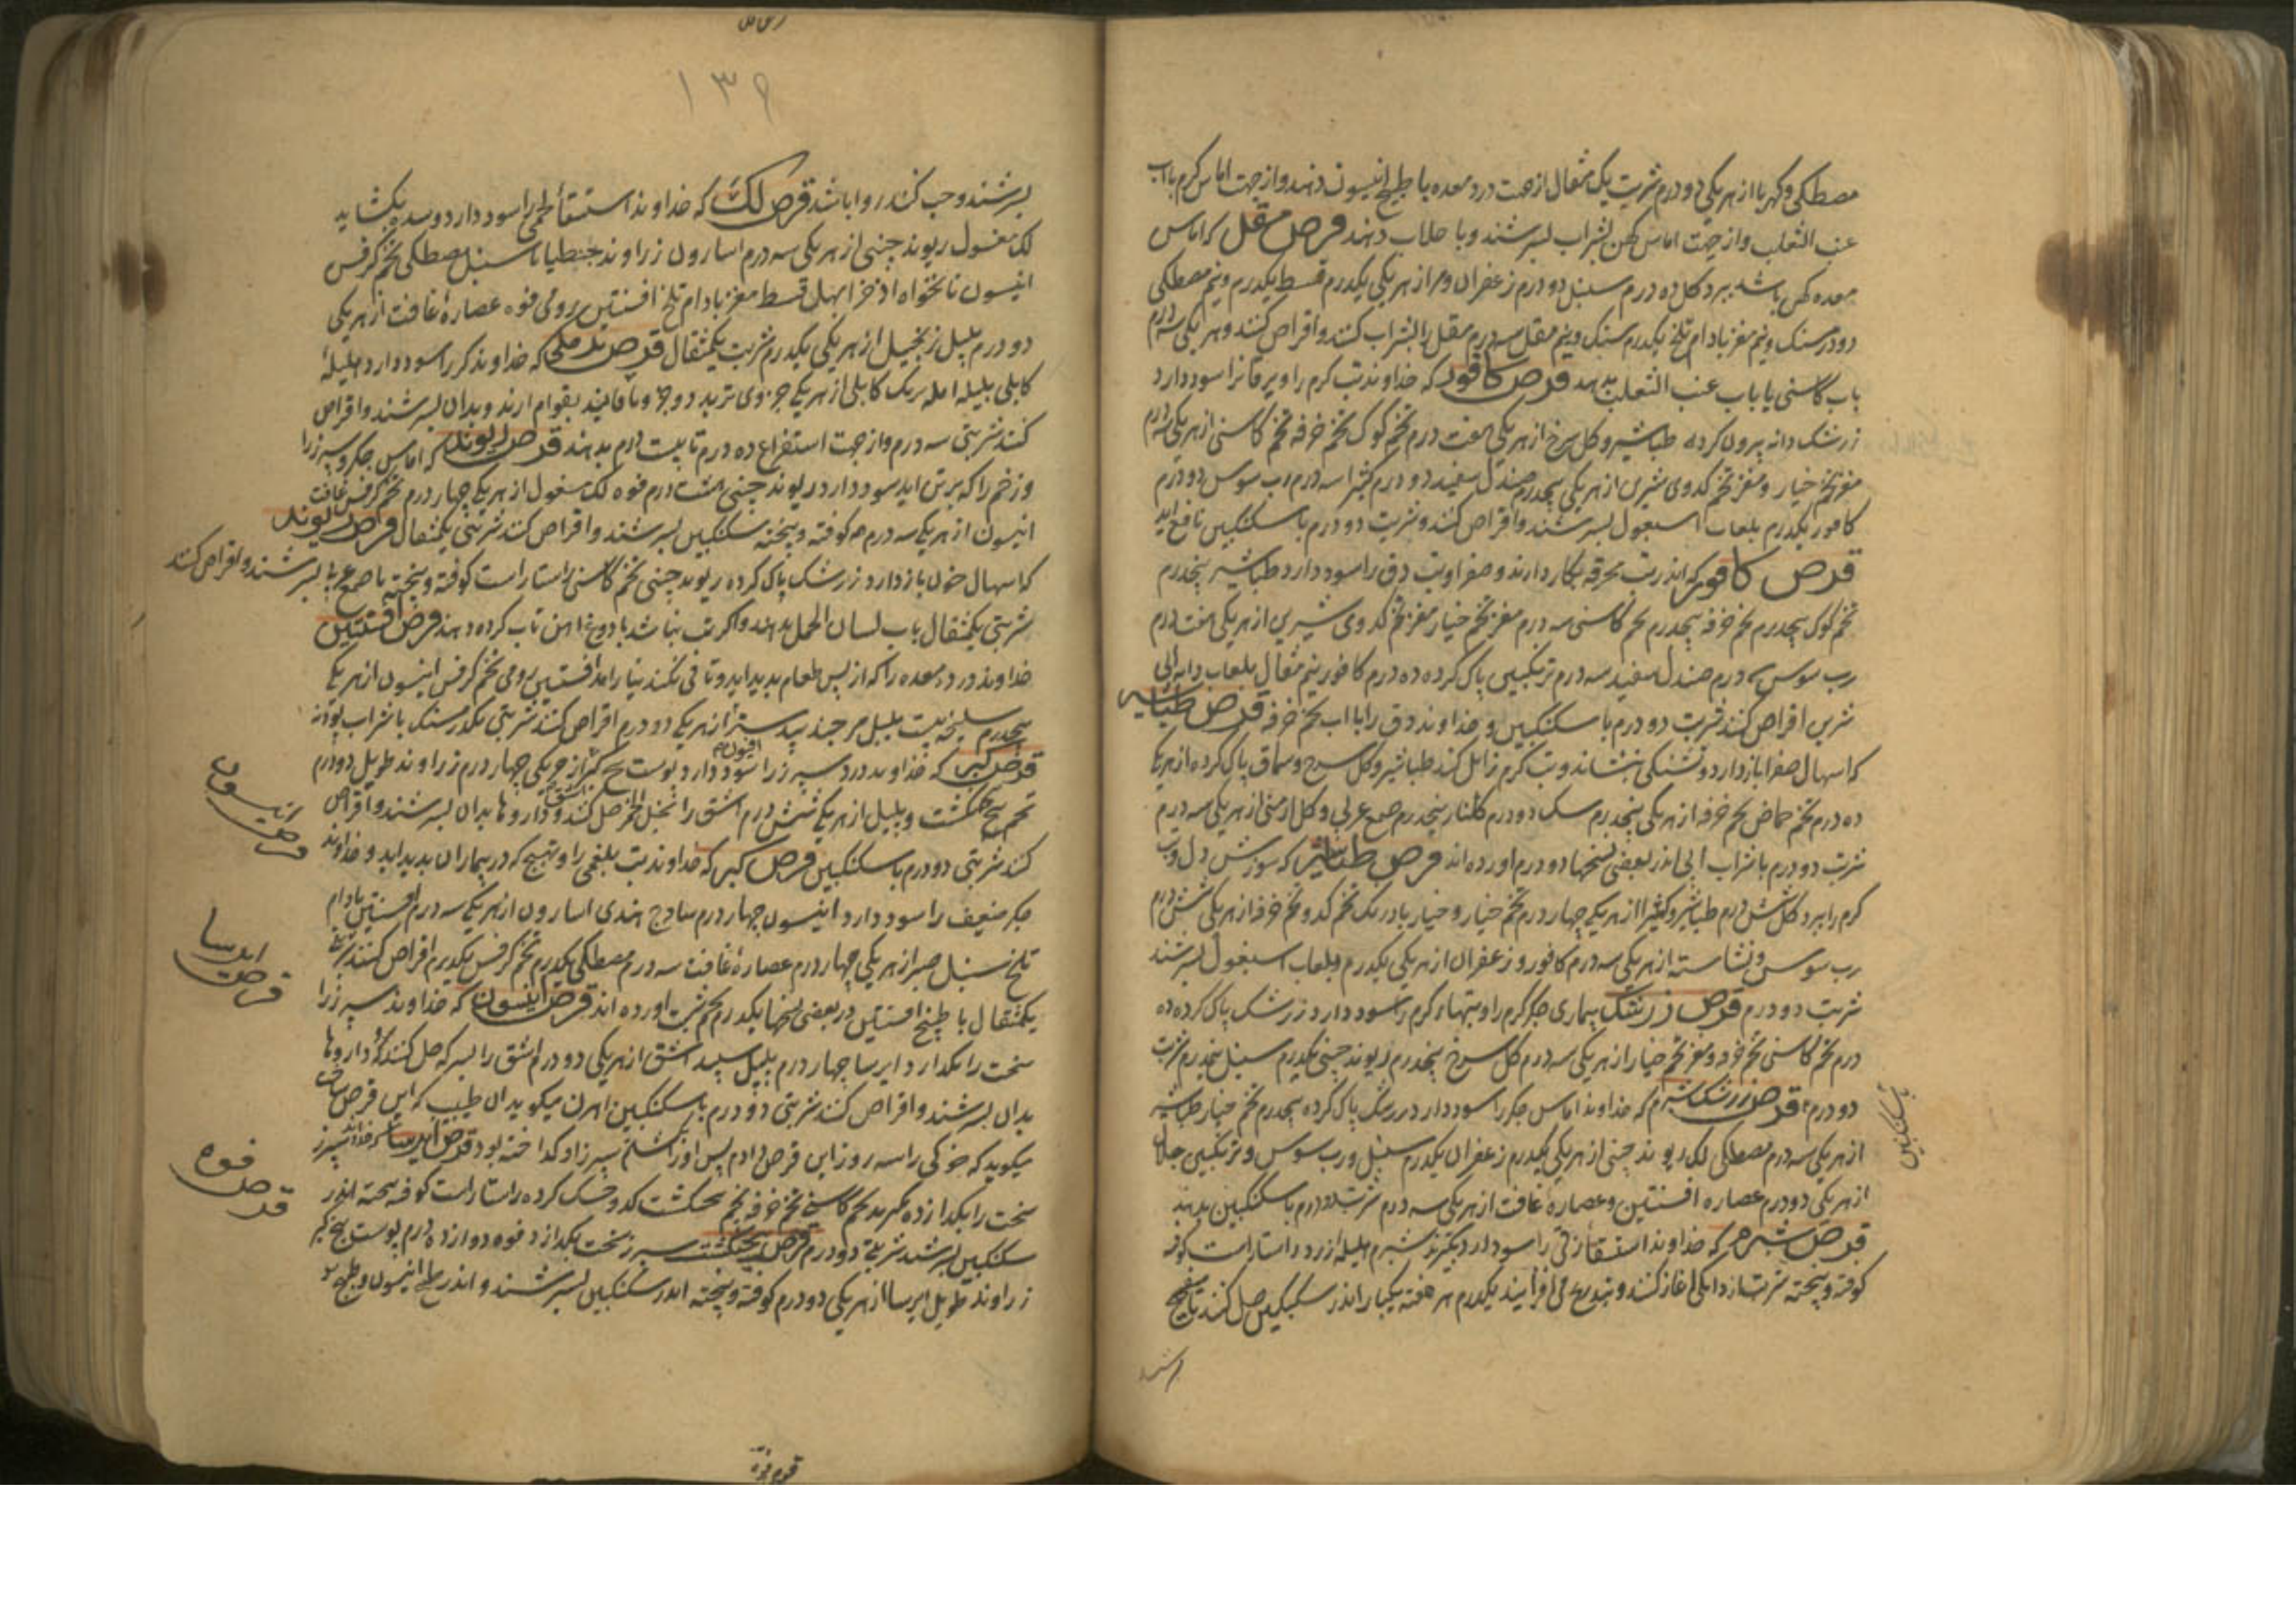 مصطکی و کهربا از هر یکی دو درم شربت یک مثقال از جهت درد معده با طبیخ انیسون دهند و از جهت اماس کرم با اب
عنب الثعلب و از جهت اماس کهن بشراب بسرشند و با جلاب دهند قرص مقل که اماس
معده کهن باشد ببرد کل ده درم سنبل دو درم زعفران و مر از هر یکی یکدرم قسط یکدرم و نیم مصطکی
دو درمسنک و نیم مغز بادام تلخ یکدرم سنک و نیم مقل سه درم مقل را بشراب کنند و اقراص کنند و هر یکی سه درم
باب کاسنی یا باب عنب الثعلب بدهند قرص کافور که خداوند تب کرم را و یرقانرا سود دارد
زرشک دانه بیرون کرده طباشیر و کل سرخ از هر یکی هفت درم تخم کوک تخم خرفه تخم کاسنی از هر یکی سه درم
مغز تخم خیار و مغز تخم کدوی شیرین از هر یکی پنجدرم صندل سفید دو درم کثیرا سه درم رب سوس دو درم
کافور یکدرم بلعاب اسبغول بسرشند و اقراص کنند و شربت دو درم با سکنکبین نافع اید
قرص کافور که اندر تب محرقه بکار دارند و صفرا و تب دق را سود دارد طباشیر پنجدرم
تخم کوک پنجدرم تخم خرفه پنجدرم تخم کاسنی سه درم مغز تخم خیار مغز تخم کدوی شیرین از هر یکی هفت درم
رب سوس درم صندل سفید سه درم ترنکبین پاک کرده ده درم کافور نیم مثقال بلعاب دانه ابی
شرین اقراص کنند شربت دو درم با سکنکبین و خداوند دق را با اب تخم خرفه قرص طباشیر
که اسهال صفرا باز دارد و تشنکی بنشاند و تب کرم زایل کند طباشیر و کل سرخ و سماق پاک کرده از هر یکی
ده درم تخم حماض تخم خرفه از هر یکی پنجدرم سک دو درم کلنار پنجدرم صمغ عربی و کل ارمنی از هر یکی سه درم
شربت دو درم با شراب ابی اندر بعضی نسخها دو درم اورده اند قرص طباشیر که سوزش دل و تب
کرم را ببرد کل شش درم طباشیر و کثیرا از هر یکی چهار درم تخم خیار و خیار بادرنک تخم کدو تخم خرفه از هر یکی شش درم
رب سوس و نشاسته از هر یکی سه درم کافور و زعفران از هر یکی یکدرم و بلعاب اسبغول بسرشند
شربت دو درم قرص زرشک بیماری جکر کرم را و تبهاء کرم را سود دارد زرشک پاک کرده ده
درم تخم کاسنی تخم خرفه و مغز تخم خیار از هر یکی سه درم کل سرخ پنجدرم ریوند چینی یکدرم سنبل پنجدرم شربت
دو درم قرص زرشک که خداوند اماس جکر را سود دارد زرشک پاک کرده پنجدرم تخم خیار طباشیر
از هر یکی سه درم مصطکی لک ریوند چینی از هر یکی یکدرم زعفران یکدرم سنبل و رب سوس و ترنکبین
از هر یکی دو درم عصاره افسنتین و عصاره غافت از هر یکی سه درم شربت دو درم با سکنکبین بدهند
قرص شبرم که خداوند استسقاء زقی را سود دارد بکیرند شبرم هلیله زرد راستاراست
کوفته و بیخته شربت از دانکی اغاز کنند و بتدریج می افزایند یکدرم هر هفته یکبار اندر سکنکبین حل کنند
بسکنکبین
۱۳۹
بسرشند و حب کنند روا باشد قرص لک که خداوند استسقاء لحمی را سود دارد و سده بکشاید
لک مغسول ریوند چینی از هر یکی سه درم اسارون زراوند جنطیانا سنبل مصطکی تخم کرفس
انیسون نانخواه اذخر ابهل قسط مغز بادام تلخ افسنتین رومی فوه عصاره غافت از هر یکی
دو درم پلپل زنجبیل از هر یکی یکدرم شربت یکمثقال قرص که خداوند را سود دارد هلیله
کابلی بلیله امله برنک کابلی از هر یکی جزوی تربد دو جزو و فانید بقوام ارند و بدان بسرشند و اقراص
کنند شربتی سه درم و از جهت استفراغ ده درم تا بیست درم بدهند قرص ریوند که اماس جکر و سپرز را
و زخم را که برتن اید سود دارد ریوند چینی هشت درم فوه لک مغسول از هر یکی چهار درم تخم کرفس غافت
انیسون از هر یکی سه درم کوفته و بیخته بسکنکبین بسرشند و اقراص کنند شربتی یکمثقال قرص ریوند
که اسهال خون باز دارد زرشک پاک کرده ریوند چینی تخم کاسنی راستاراست کوفته و بیخته با صمغ بسرشند و اقراص کنند
شربتی یکمثقال باب لسان الحمل بدهند و اکر تب نباشد با دوغ اهن تاب کرده دهند قرص افسنتین
خداوند درد معده را که از پس طعام پدید اید و تا قی نکند نیارامد افسنتین رومی تخم کرفس انیسون از هر یکی
پنجدرم سلیخه بیست پلپل مر جند بیدستر از هر یکی دو درم اقراص کنند شربتی یکدرمسنک با شراب
قرص کبر که خداوند درد سپرز را سود دارد پوست بیخ کبر از هر یکی چهار درم زراوند طویل دو درم
تخم پنجنکشت و پلپل از هر یکی شش درم اشق را بخل الخمر حل کنند و داروها بدان بسرشند و اقراص
کنند شربتی دو درم با سکنکبین قرص کبر که خداوند تب بلغمی را و تهبج که در بیماران پدید اید و خداوند
جکر ضعیف را سود دارد انیسون چهار درم ساذج هندی اسارون از هر یکی سه درم افسنتین بادام
تلخ سنبل صبر از هر یکی چهار درم عصاره غافت سه درم مصطکی یکدرم تخم کرفس یکدرم اقراص کنند شربتی
یکمثقال با طبیخ افسنتین در بعضی نسخها یکدرم تخم شبت اورده اند قرص انیسون که خداوند سپرز را
سخت را بکدازد ایرسا چهار درم پلپل سپید اشق از هر یکی دو درم اشق را بسرکه حل کنند و داروها
بدان بسرشند و اقراص کنند شربتی دو درم با سکنکبین اهرن میکوید ان طبیب که این قرص ساخت
میکوید که خوکی را سه روز این قرص دادم پس او را بکشتم سپرز او کداخته بود قرص ایرسا که خداوند سپرز
سخت را بکدازد بکیرند تخم کاسنی تخم خرفه تخم پنجنکشت کدو خشک کرده راستاراست کوفته بیخته اندر
سکنکبین بسرشند شربتی دو درم قرص پنجنکشت سپرز سخت بکدازد فوه دوازده درم پوست بیخ کبر
زراوند طویل ایرسا از هر یکی دو درم کوفته و بیخته اندر سکنکبین بسرشند و اندر طبخ انیسون
قرص انیسون
قرص ایرسا
قرص فوه
قرص فوه